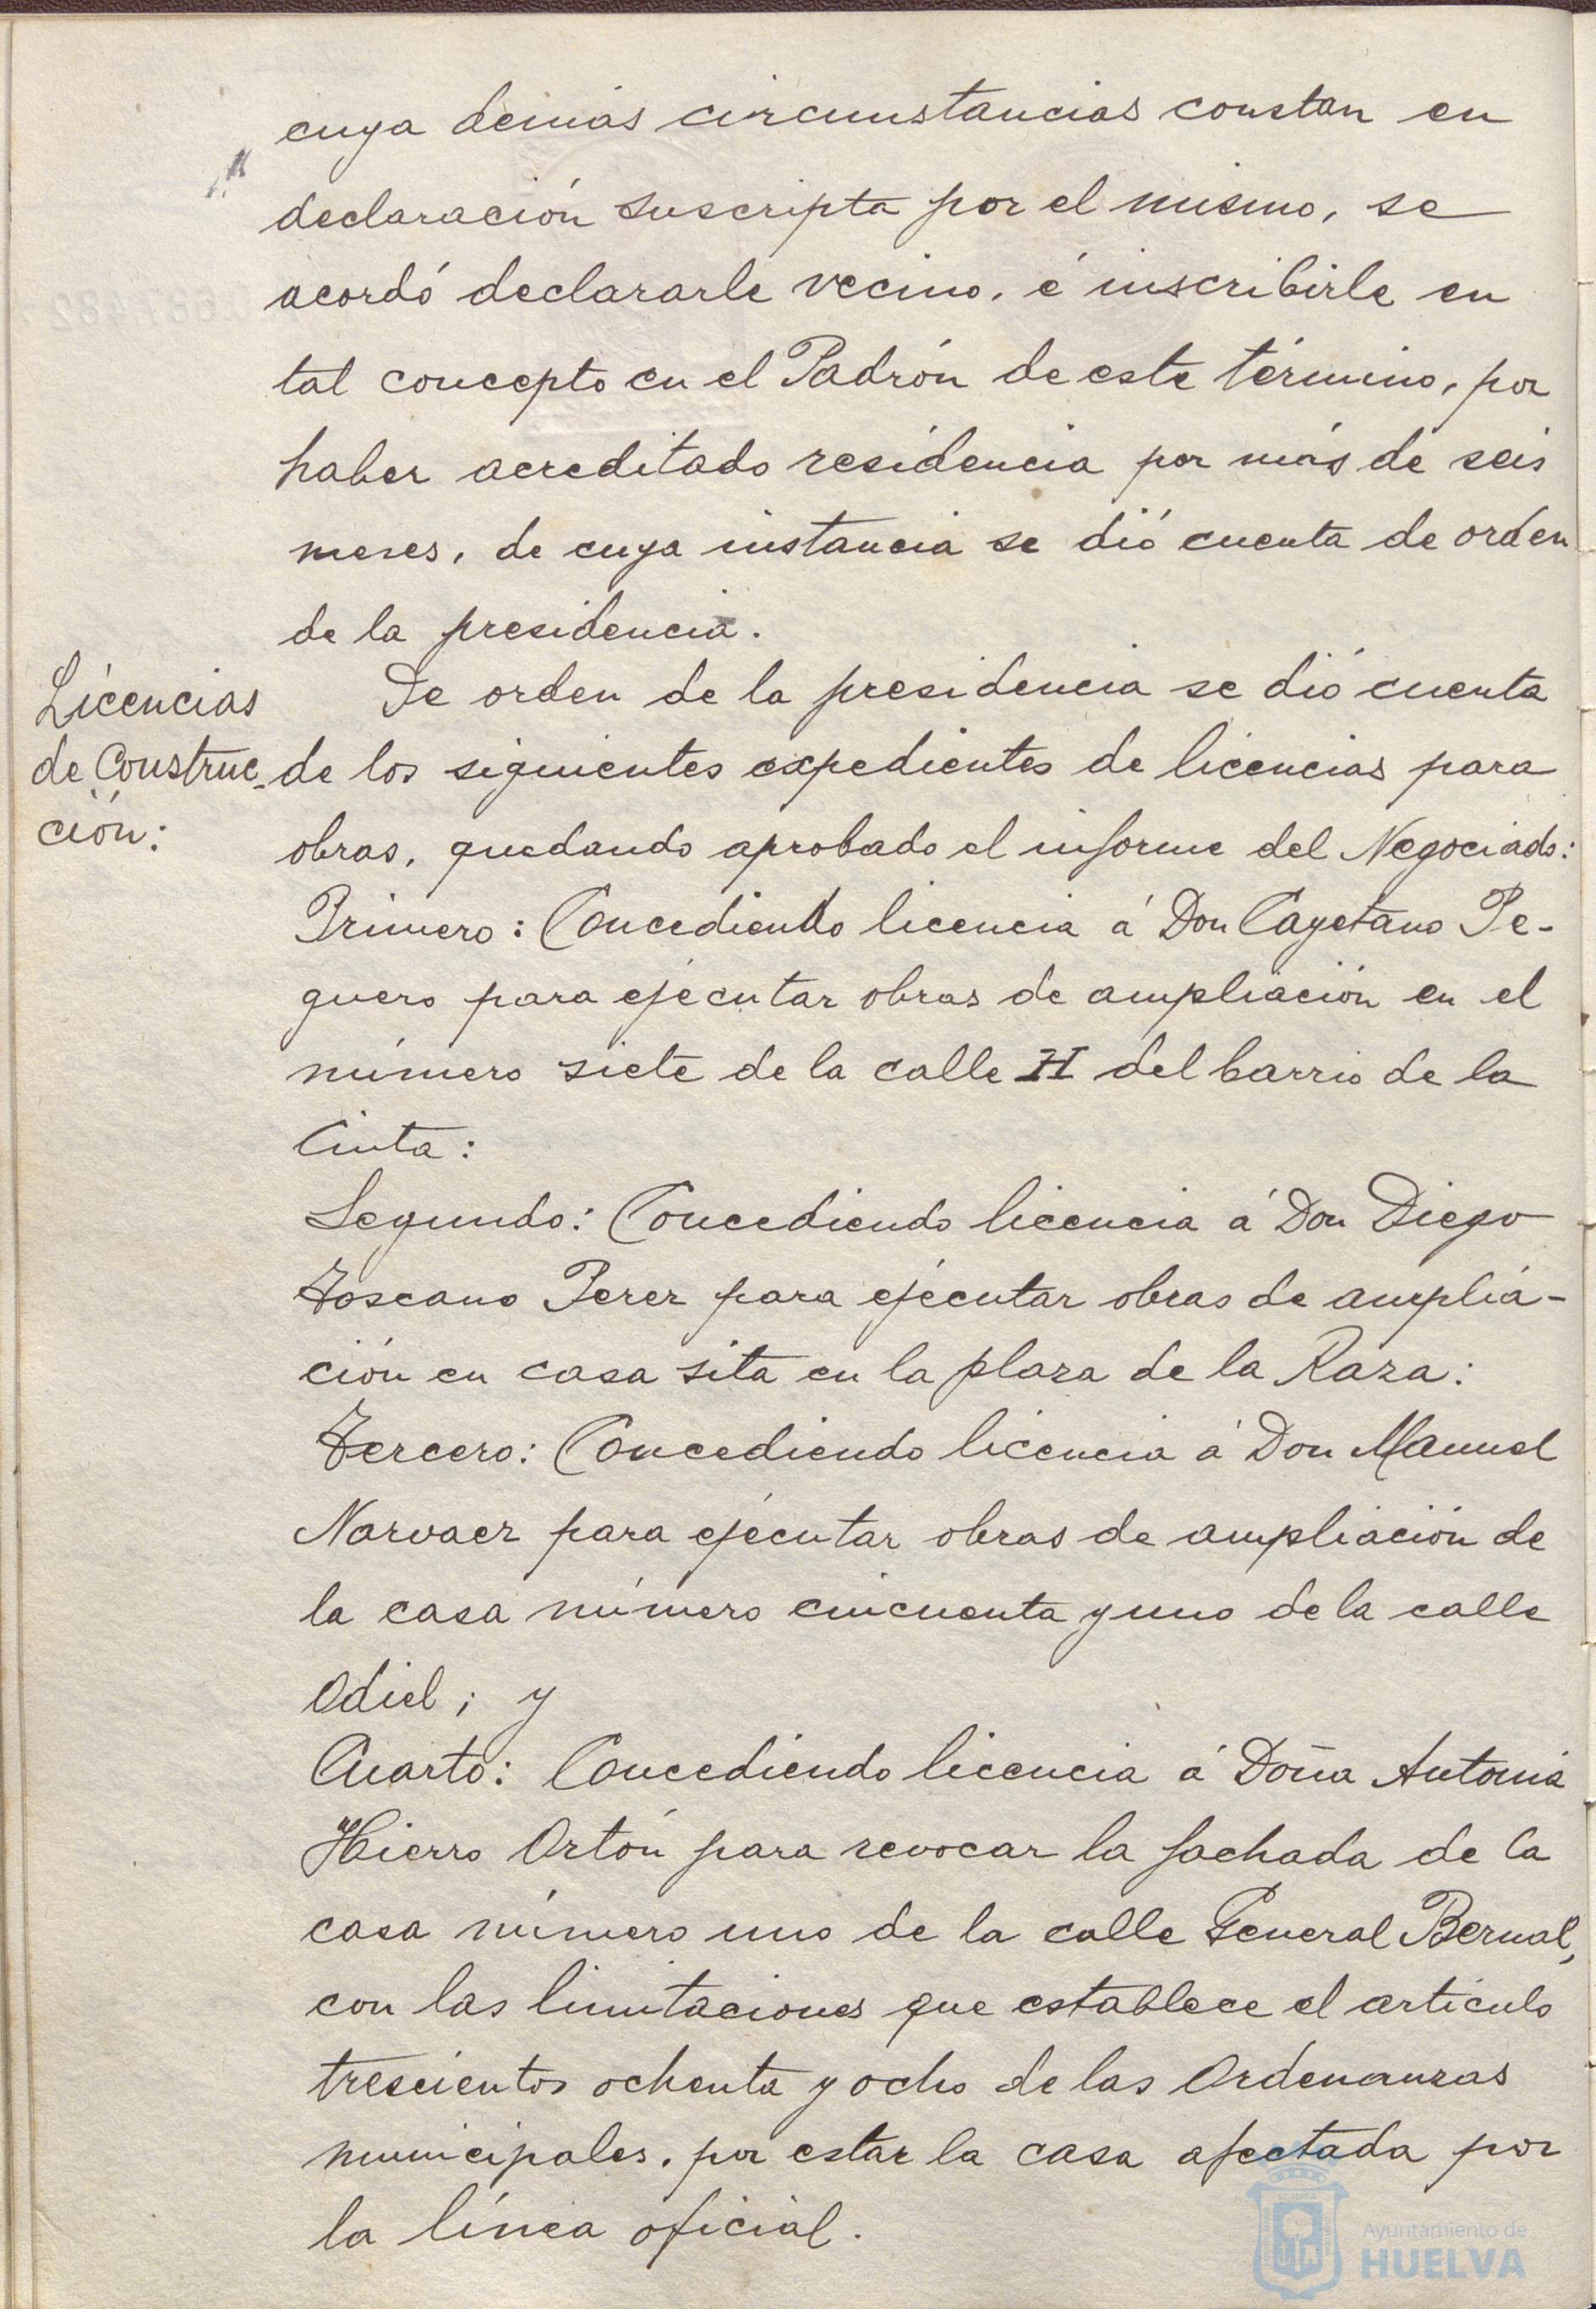 cuya demás circunstancias constan en
declaración suscripta por el mismo, se
acordó declararle vecino, é inscribirle en
tal concepto en el Padrón de este término, por
haber acreditado residencia por más de seis
meses, de cuya instancia se dió cuenta de orden
de la presidencia.
Licencias
de Construc-
ción:
De orden de la presidencia se dió cuenta
de los siguientes expedientes de licencias para
obras, quedando aprobado el informe del Negociado:
Primero: Concediendo licencia á Don Cayetano Pe-
guero para ejecutar obras de ampliación en el
número siete de la calle H del barrio de la
Cinta:
Segundo: Concediendo licencia á Don Diego
Toscano Perez para ejecutar obras de amplia-
ción en casa sita en la plaza de la Raza:
Tercero: Concediendo licencia á Don Manuel
Narvaez para ejecutar obras de ampliación de
la casa número cincuenta y uno de la calle
Odiel; y
Cuarto: Concediendo licencia á Doña Antonia
Hierro Ortón para revocar la fachada de la
casa número uno de la calle General Bernal,
con las limitaciones que establece el artículo
trescientos ochenta y ocho de las Ordenanzas
municipales, por estar la casa afectada por
la línea oficial.
Ayuntamiento de
HUELVA